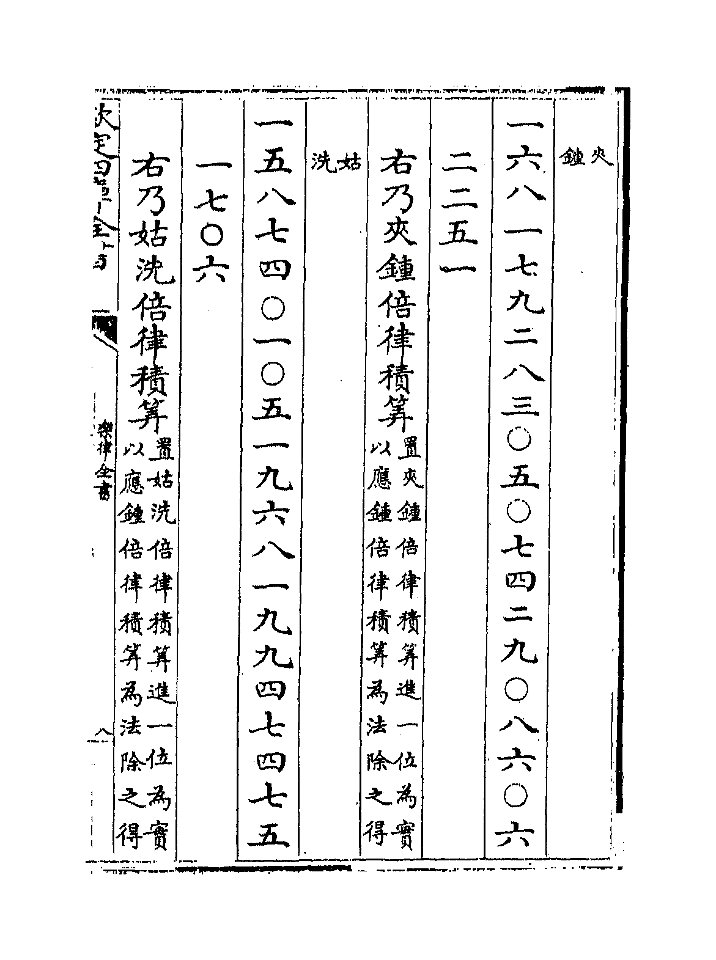 夾鍾
一六八一七九二八三〇五〇七四二九〇八六〇六
二二五一
右乃夾鍾倍律積筭置夾鍾倍律積筭進一位為實
以應鍾倍律積筭為法除之得
姑洗
一五八七四〇一〇五一九六八一九九四七四七五
一七〇六
右乃姑洗倍律積筭置姑洗倍律積筭進一位為實
以應鍾倍律積筭為法除之得
欽定四庫全書
樂律全書
八